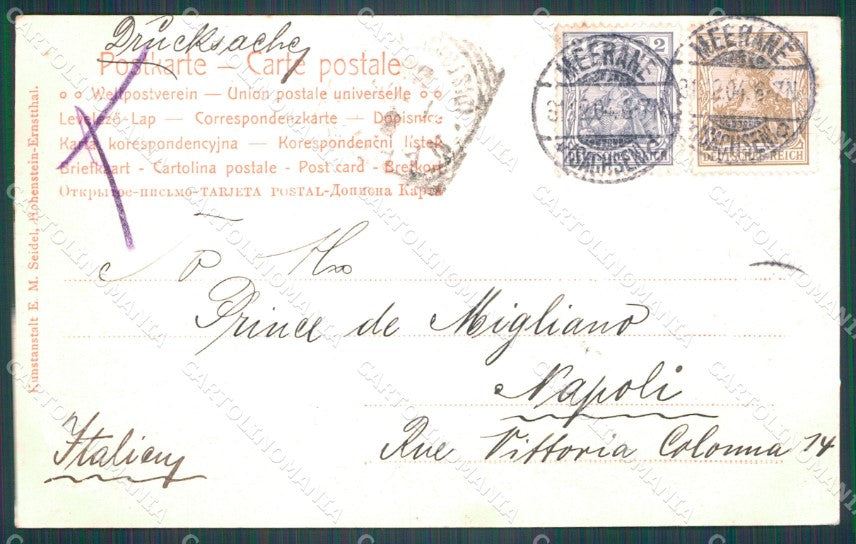 Drucksache
Postkarte — Carte postale
Weltpostverein — Union postale universelle
Levelező-Lap — Correspondenzkarte — Dopisnice
Karta korespondencyjna — Korespondenční lístek
Briefkaart - Cartolina postale - Post card - Brefkort
Открытое-письмо-TARJETA POSTAL-Дописна Карта
Kunstanstalt E. M. Seidel, Hohenstein-Ernstthal.
MEERANE
(SACHSEN)
2
MEERANE
(SACHSEN)
DEUTSCHES REICH
Prince de Migliano
Napoli
Italien
Rue Vittoria Colonna 14
CARTOLINOMANIA